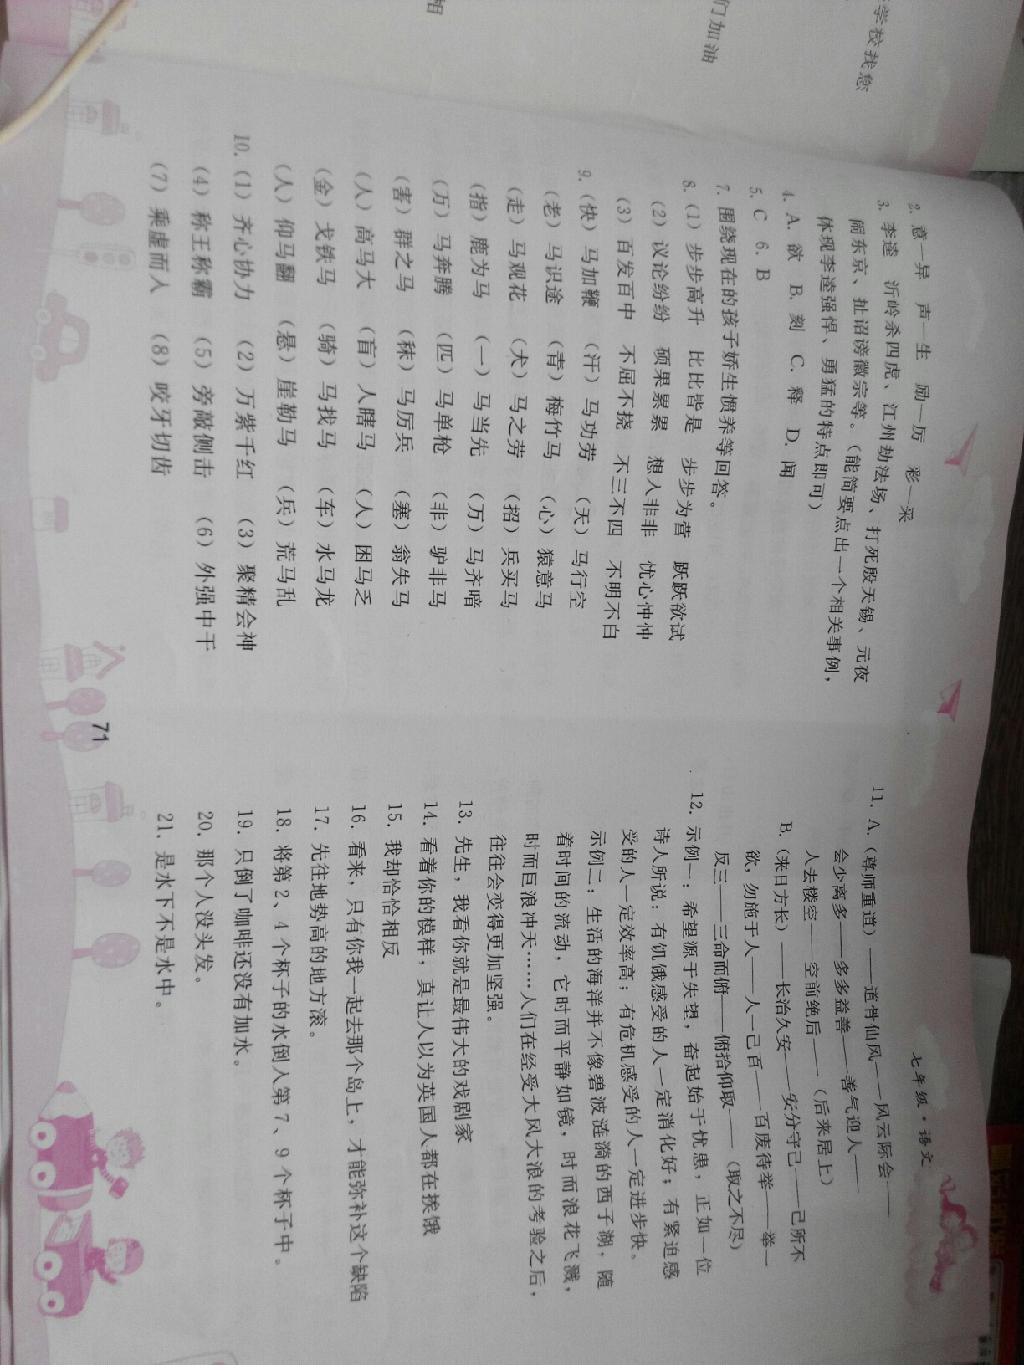 学校找您
们加油
相
2. 意—异 声—生 励—厉 彩—采
3. 李逵 沂岭杀四虎、江州劫法场、打死殷天锡、元夜
闹东京、扯诏谤徽宗等。（能简要点出一个相关事例，
体现李逵强悍、勇猛的特点即可）
4. A. 欲 B. 刻 C. 释 D. 闻
5. C 6. B
7. 围绕现在的孩子娇生惯养等回答。
8. (1) 步步高升 比比皆是 步步为营 跃跃欲试
(2) 议论纷纷 硕果累累 想入非非 忧心忡忡
(3) 百发百中 不屈不挠 不三不四 不明不白
9. (快) 马加鞭 (汗) 马功劳 (天) 马行空
(老) 马识途 (青) 梅竹马 (心) 猿意马
(走) 马观花 (犬) 马之劳 (招) 兵买马
(指) 鹿为马 (一) 马当先 (万) 马齐喑
(万) 马奔腾 (匹) 马单枪 (非) 驴非马
(害) 群之马 (秣) 马厉兵 (塞) 翁失马
(人) 高马大 (盲) 人瞎马 (人) 困马乏
(金) 戈铁马 (骑) 马找马 (车) 水马龙
(人) 仰马翻 (悬) 崖勒马 (兵) 荒马乱
10. (1) 齐心协力 (2) 万紫千红 (3) 聚精会神
(4) 称王称霸 (5) 旁敲侧击 (6) 外强中干
(7) 乘虚而入 (8) 咬牙切齿
七年级·语文
11. A.（尊师重道）——道骨仙风——风云际会——
会少离多——多多益善——善气迎人——
人去楼空——空前绝后——（后来居上）
B.（来日方长）——长治久安——安分守己——己所不
欲，勿施于人——人一己百——百废待举——举一
反三——三命而俯——俯拾仰取——（取之不尽）
12. 示例一：希望源于失望，奋起始于忧患，正如一位
诗人所说：有饥饿感受的人一定消化好；有紧迫感
受的人一定效率高；有危机感受的人一定进步快。
示例二：生活的海洋并不像碧波涟漪的西子湖，随
着时间的流动，它时而平静如镜，时而浪花飞溅，
时而巨浪冲天……人们在经受大风大浪的考验之后，
往往会变得更加坚强。
13. 先生，我看你就是最伟大的戏剧家
14. 看着你的模样，真让人以为英国人都在挨饿
15. 我却恰恰相反
16. 看来，只有你我一起去那个岛上，才能弥补这个缺陷
17. 先往地势高的地方滚。
18. 将第 2、4 个杯子的水倒入第 7、9 个杯子中。
19. 只倒了咖啡还没有加水。
20. 那个人没头发。
21. 是水下不是水中。
71